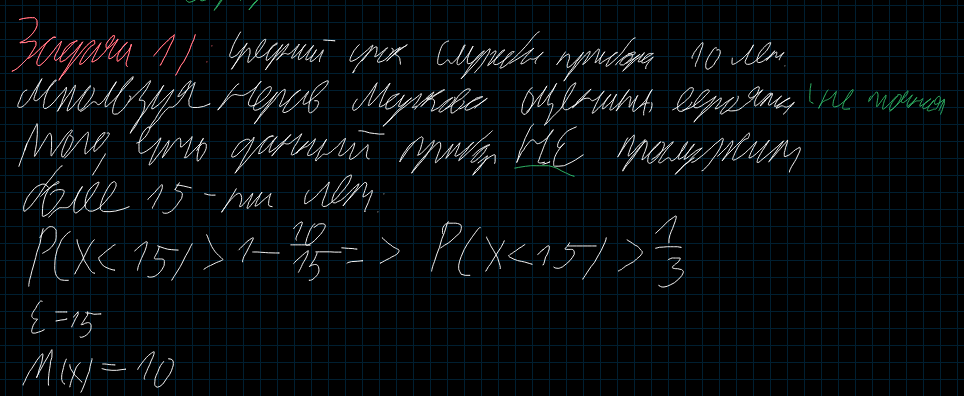 Задача 1) Средний срок службы прибора 10 лет.
Используя нерав Маркова оценить вероятн (не точная
того, что данный прибор НЕ прослужит
более 15-ти лет.
P(X < 15) > 1 - 10/15 => P(X < 15) > 1/3
ε = 15
M(X) = 10